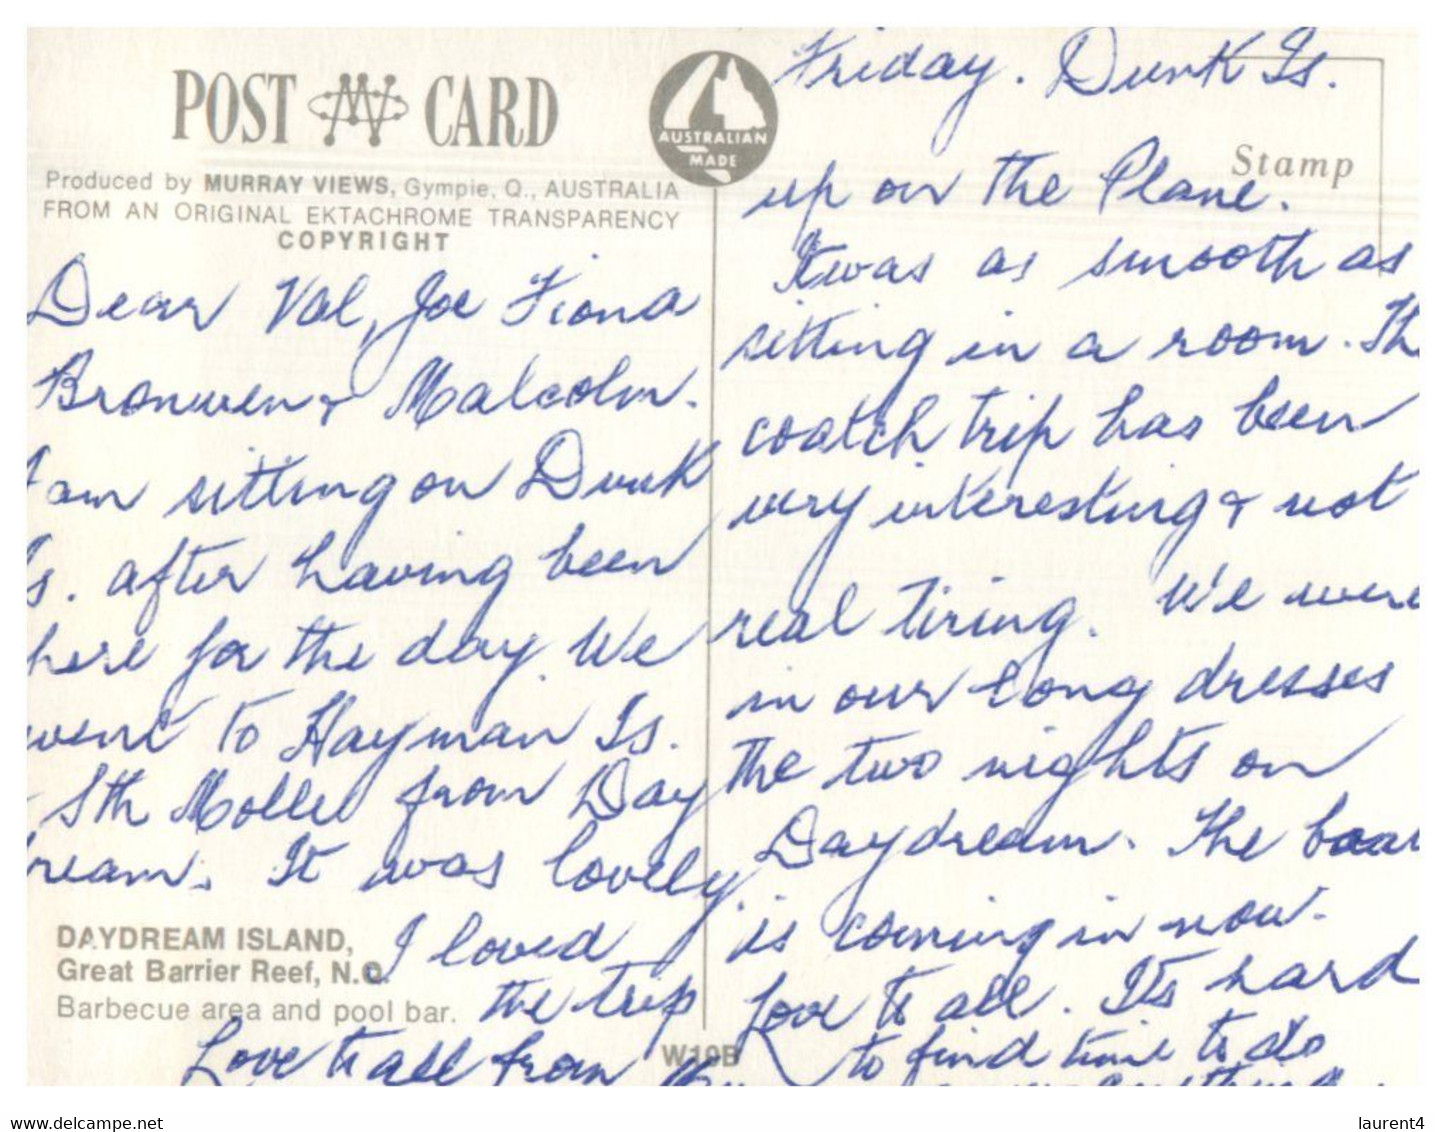 POST CARD
AUSTRALIAN
MADE
Produced by MURRAY VIEWS, Gympie, Q., AUSTRALIA
FROM AN ORIGINAL EKTACHROME TRANSPARENCY
COPYRIGHT
Dear Val, Joe Fiona
Bronwen & Malcolm.
I am sitting on Dunk
Is. after having been
here for the day. We
went to Hayman Is.
Sth Molle from Day
ream. It was lovely
I loved
the trip
DAYDREAM ISLAND,
Great Barrier Reef, N.Q.
Barbecue area and pool bar.
Love to all from
W10B
Friday. Dunk Is.
Stamp
up on the Plane.
It was as smooth as
sitting in a room. Th
coatch trip has been
very interesting & not
real tiring. We were
in our long dresses
the two nights on
Daydream. The boa
is coming in now.
Love to all. Its hard
to find time to do
delcampe.net
laurent4